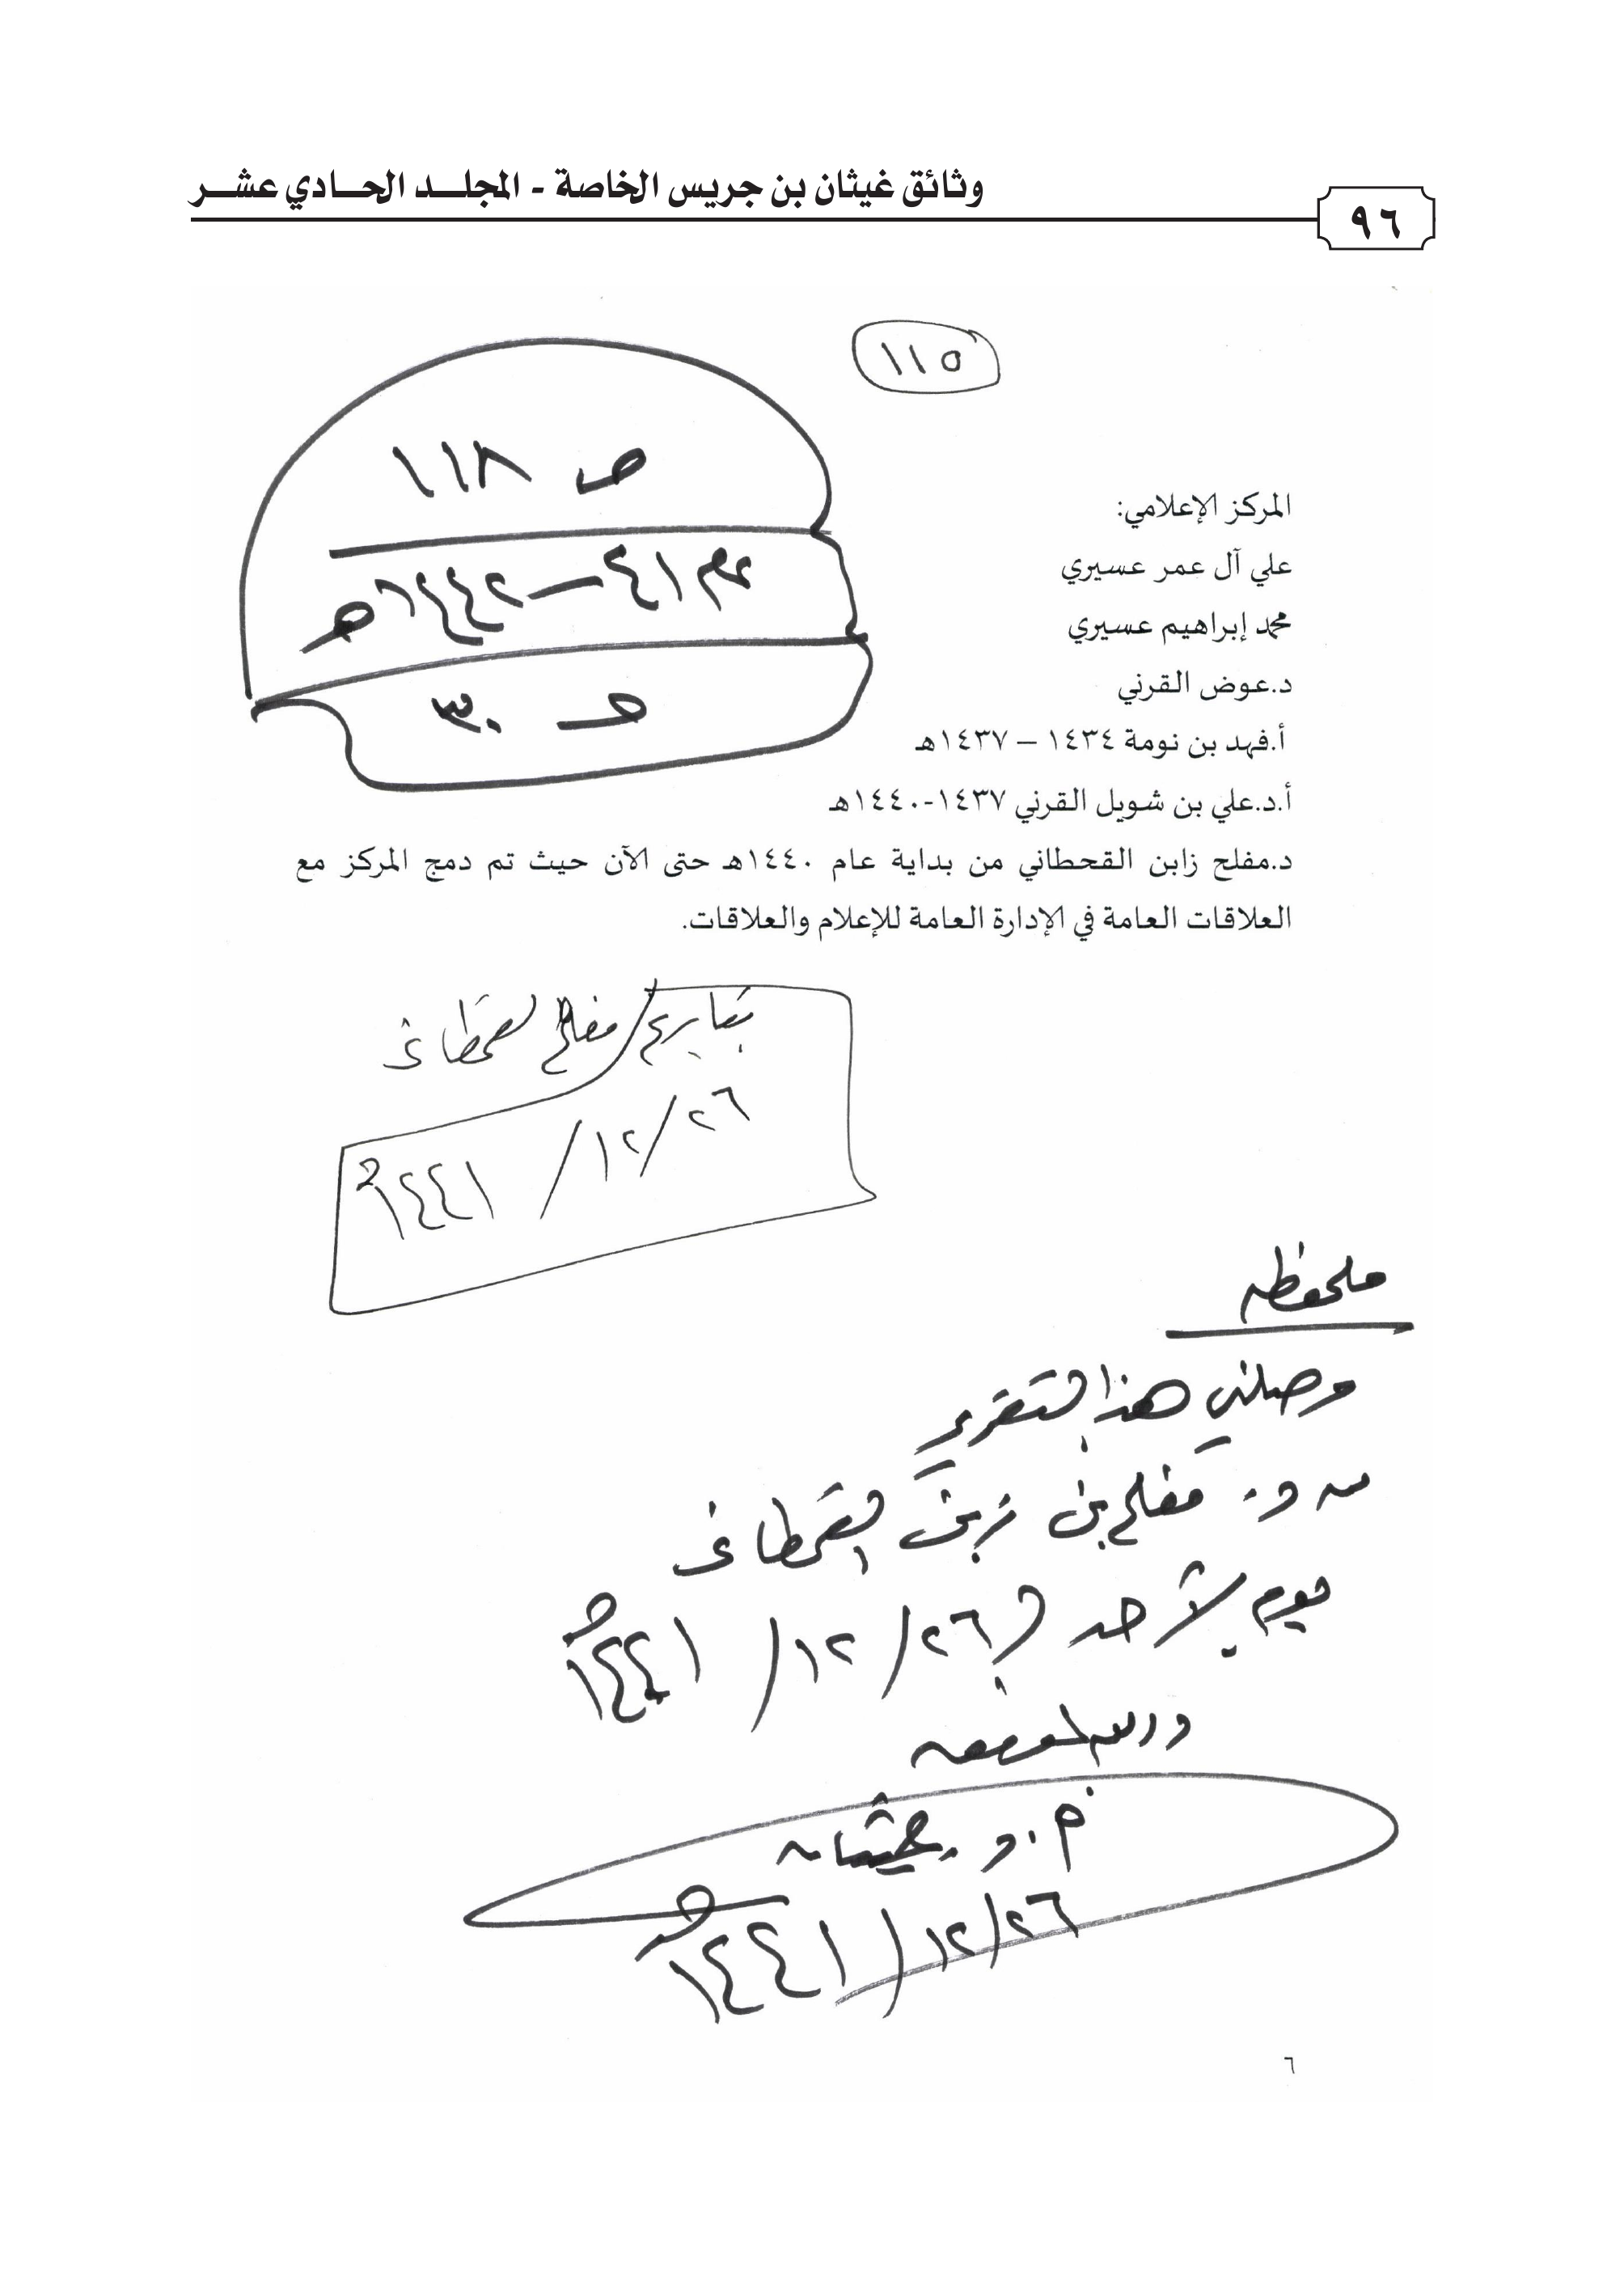 وثائق غيثان بن جريس الخاصة - المجلد الحادي عشر
٩٦
١١٥
ص ١١٨
عام ٤١ - ١٤٤٢هـ
ص ٣٠
المركز الإعلامي:
علي آل عمر عسيري
محمد إبراهيم عسيري
د.عوض القرني
أ.فهد بن نومة ١٤٣٤ – ١٤٣٧هـ
أ.د.علي بن شويل القرني ١٤٣٧-١٤٤٠هـ
د.مفلح زابن القحطاني من بداية عام ١٤٤٠هـ حتى الآن حيث تم دمج المركز مع
العلاقات العامة في الإدارة العامة للإعلام والعلاقات.
بتاريخ / مفلح القحطاني
٢٦ / ١٢ / ١٤٤١هـ
ملحوظة
وصلني هذا التقرير
من د. مفلح بن زبن القحطاني
يوم الأحد ٢٦ / ١٢ / ١٤٤١هـ
والله الموفق
أ.د. غيثان
٢٦ / ١٢ / ١٤٤١هـ
٦